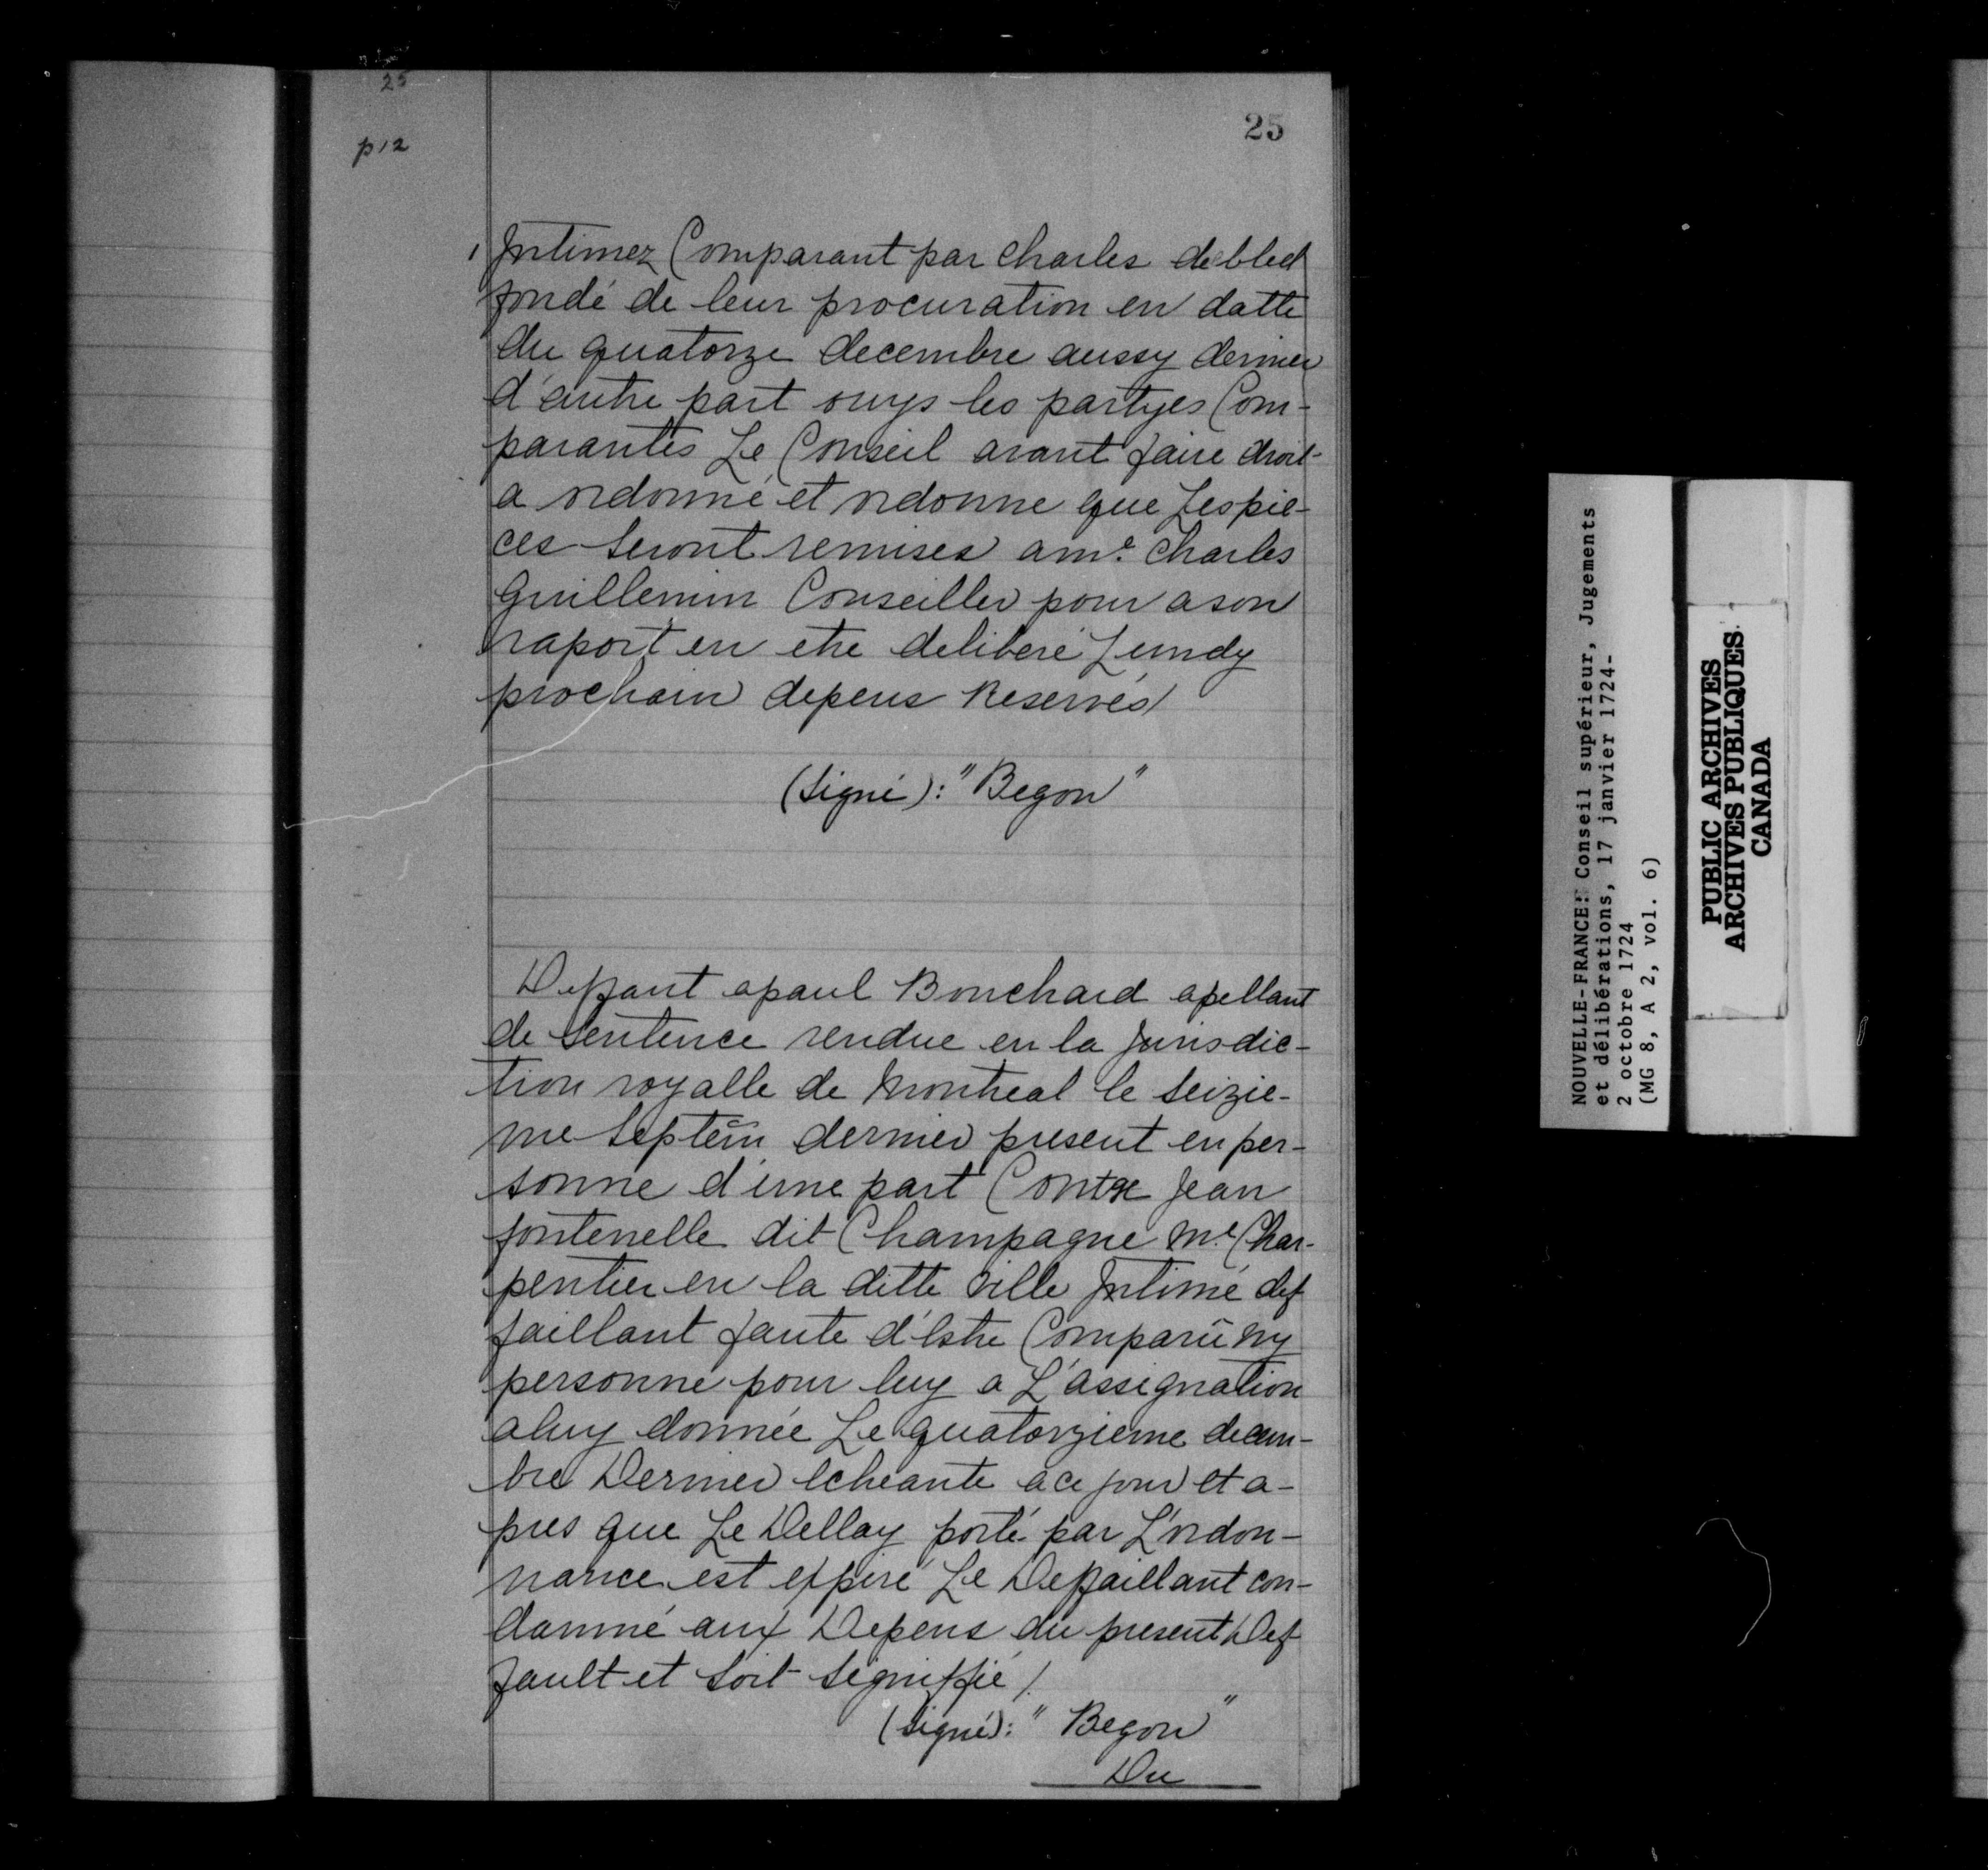 25
p 12
25
Intimez Comparant par Charles debled
fondé de leur procuration en datte
du quatorze decembre aussy dernier
d'autre part ouys les partyes Com-
parantes Le Conseil avant faire droit
a ordonné et ordonne que Les piè-
ces seront remises a me. Charles
Guillemin Conseiller pour a son
raport en etre deliberé Lundy
prochain depens Reservés/
(Signé): "Begon"
Deffaut apaul Bouchard apellant
de Sentence rendue en la Jurisdic-
tion royalle de Montreal le Seizie-
me Septem dernier present en per-
sonne d'une part Contre Jean
fontenelle dit Champagne Me. Char-
pentier en la ditte ville Intimé def
faillant faute d'Estre Comparû ny
personne pour luy a L'assignation
aluy donnée Le quatorzieme decem-
bre Dernier echeante a ce jour et a-
pres que Le Dellay porté par L'ordon-
nance est expiré Le Deffaillant con-
damné aux Depens du present Def
fault et soit signiffié/.
(Signé): "Begon"
Du
NOUVELLE-FRANCE: Conseil supérieur, Jugements
et délibérations, 17 janvier 1724-
2 octobre 1724
(MG 8, A 2, vol. 6)
PUBLIC ARCHIVES
ARCHIVES PUBLIQUES
CANADA